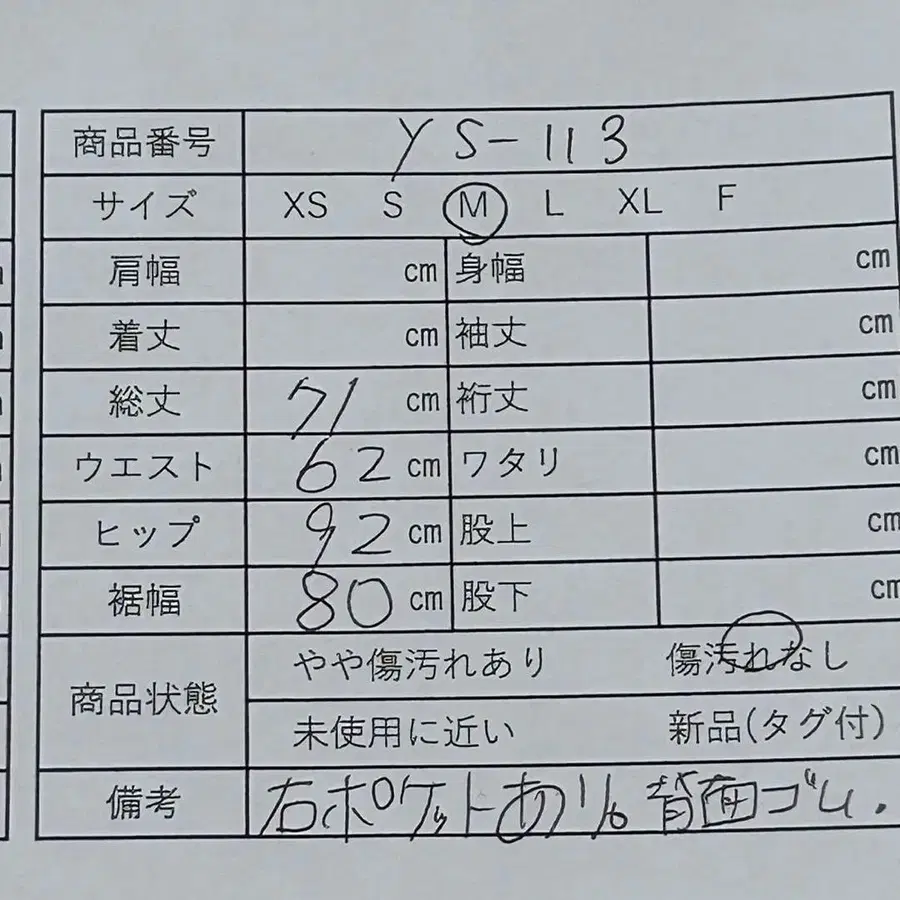 商品番号 YS-113
サイズ XS S M L XL F
肩幅 cm 身幅 cm
着丈 cm 袖丈 cm
総丈 71 cm 裄丈 cm
ウエスト 62 cm ワタリ cm
ヒップ 92 cm 股上 cm
裾幅 80 cm 股下 cm
商品状態 やや傷汚れあり 傷汚れなし
未使用に近い 新品(タグ付)
備考 右ポケットあり。背面ゴム.